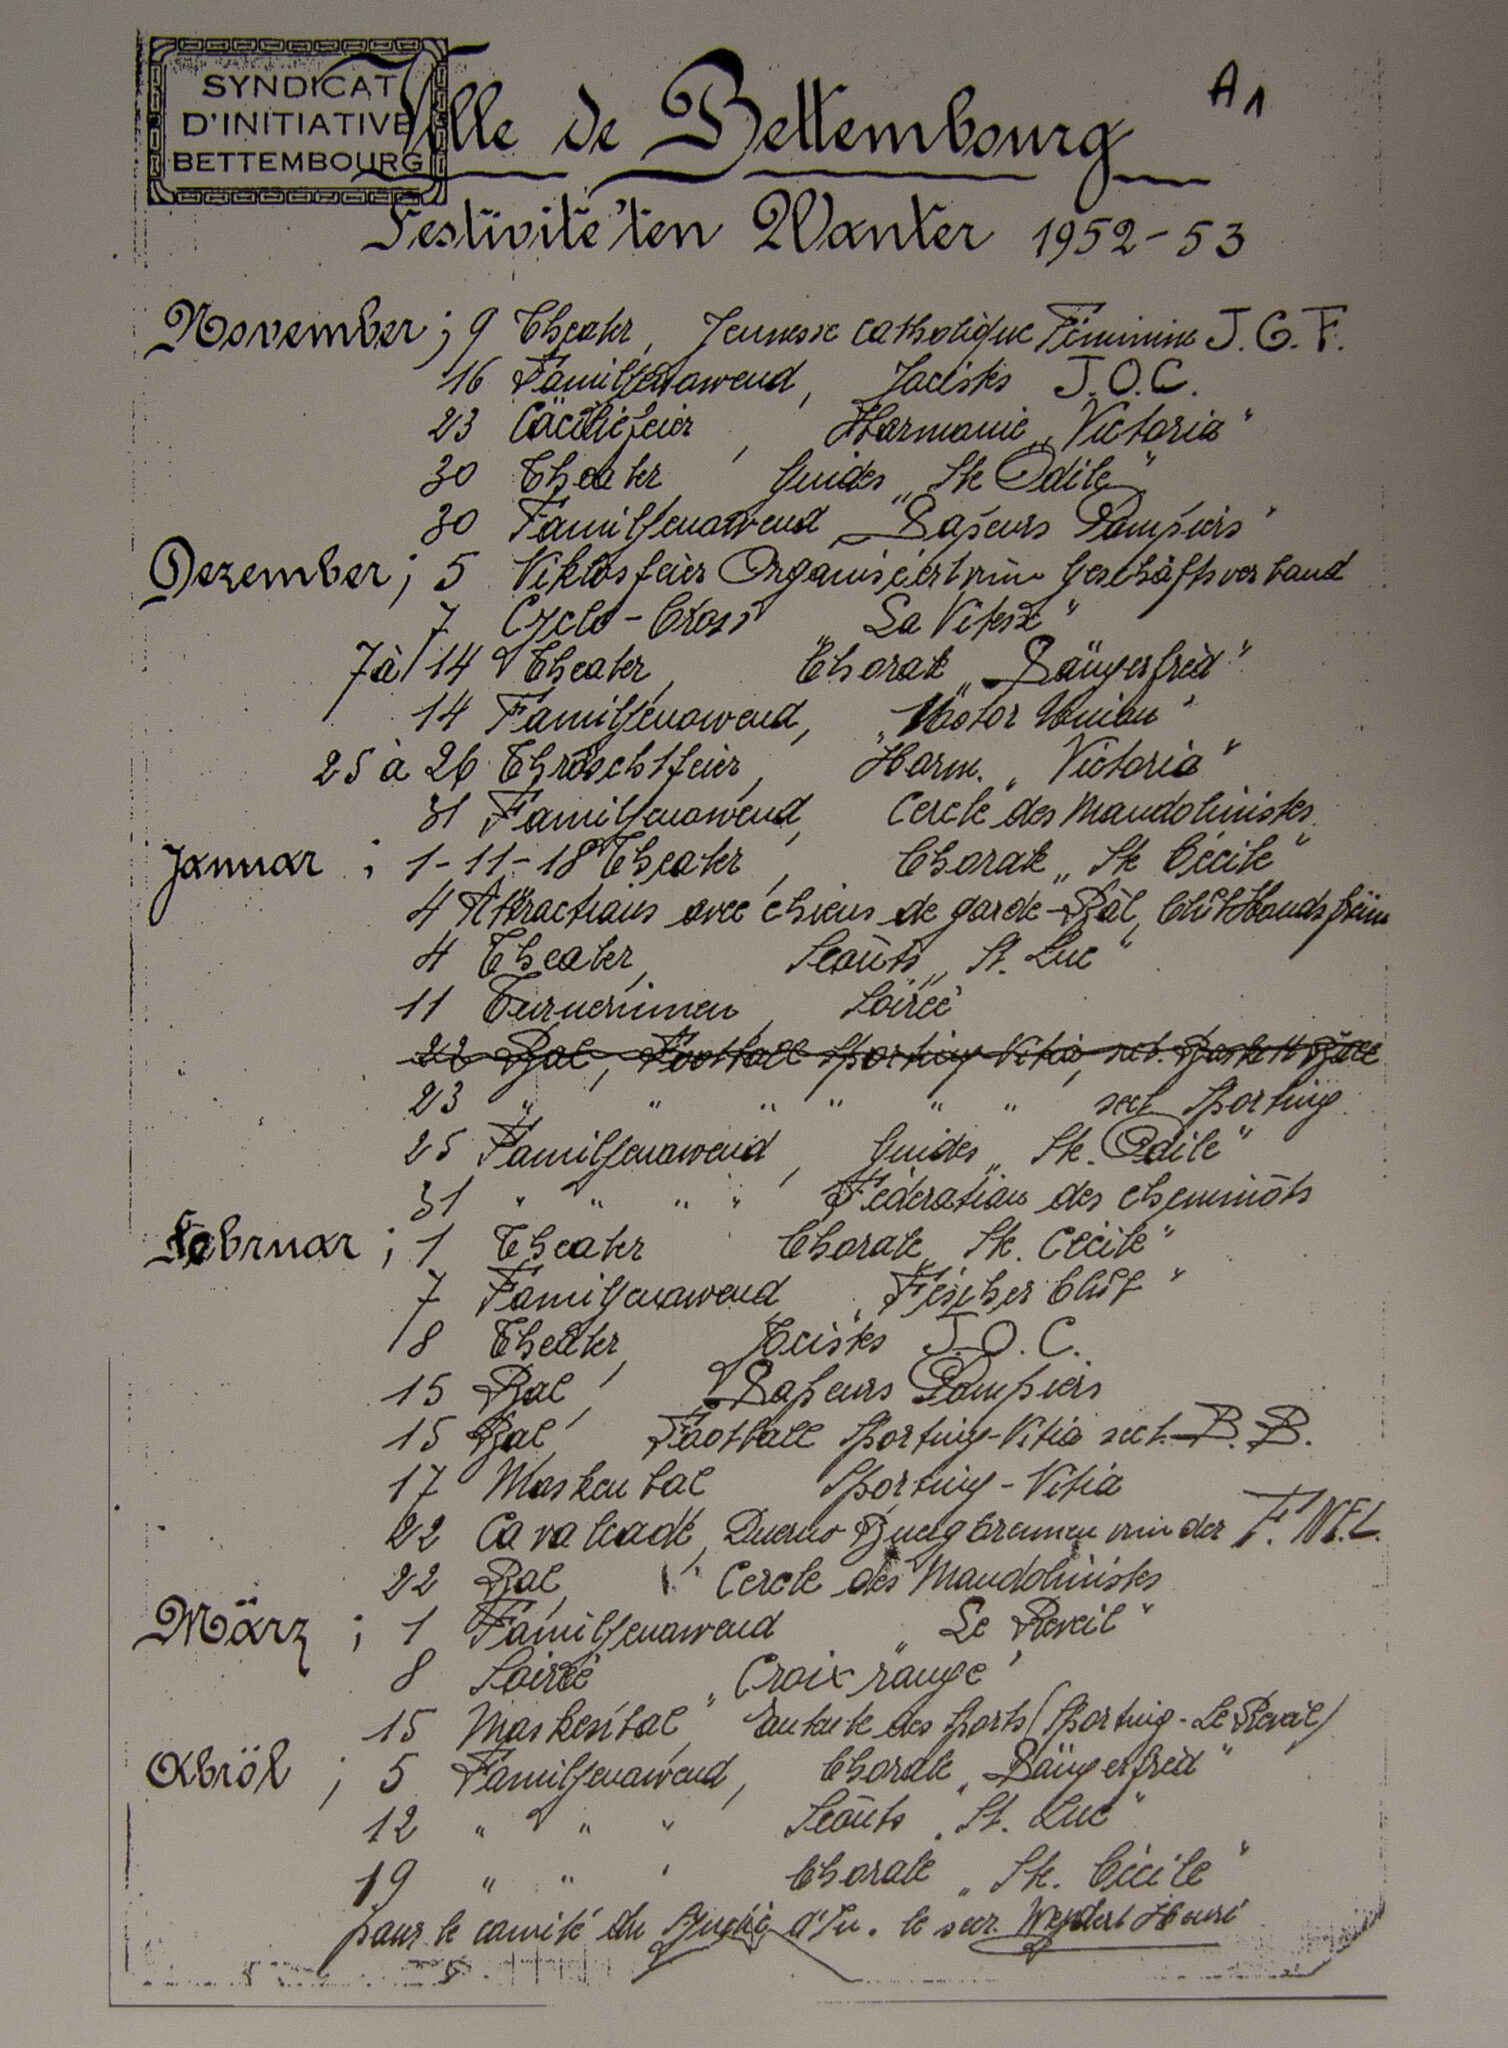 SYNDICAT
D'INITIATIVE
BETTEMBOURG
A1
Ville de Bettembourg
Festivite'ten Wanter 1952-53
November ; 9 Theater, Jeunesse catholique Féminine J.C.F.
16 Familjenowend, Jocistes J.O.C.
23 Cäciliefeier, Harmonie „Victoria"
30 Theater Guides „Ste Odile"
30 Familjenowend „Sapeurs Pompiers"
Dezember ; 5 Niklosfeier Organiséiert vum Geschäftsverband
7 Cyclo-Cross „La Vitesse"
7 à 14 Theater, Chorale „Sängerfred"
14 Familjenowend, „Motor Union"
25 à 26 Chröschtfeier, Harm. „Victoria"
31 Familjenowend, Cercle des Mandolinistes
Januar ; 1-11-18 Theater, Chorale „Ste Cécile"
4 Attractions avec chiens de garde-Bal, Club Hondsfrënn
4 Theater, Scouts „St. Luc"
11 Turnerinnen Soirée
22 Bal, Football Sporting-Vitia, sect. Baskett Ball
23 " " " " " " sect Sporting
25 Familjenowend, Guides „Ste. Odile"
31 " " " " Féderation des cheminots
Februar ; 1 Theater Chorale „Ste. Cécile"
7 Familjenowend „Fëscher Club"
8 Theater, Jocistes J.O.C.
15 Bal, Sapeurs Pompiers
15 Bal, Football Sporting-Vitia sect. B.B.
17 Maskenbal Sporting-Vitia
22 Cavalcade, Buergbrennen vun der F.N.E.L.
22 Bal, Cercle des Mandolinistes
März ; 1 Familjenowend „Le Réveil"
8 Soirée „Croix rouge"
15 Maskenbal, Entente des Sports (Sporting-Le Réveil)
Abröl ; 5 Familjenowend, Chorale „Sängerfred"
12 " " " Scouts „St. Luc"
19 " " " Chorale „Ste. Cécile"
pour le comité du Syndic. d'In. le secr. Weydert Henri